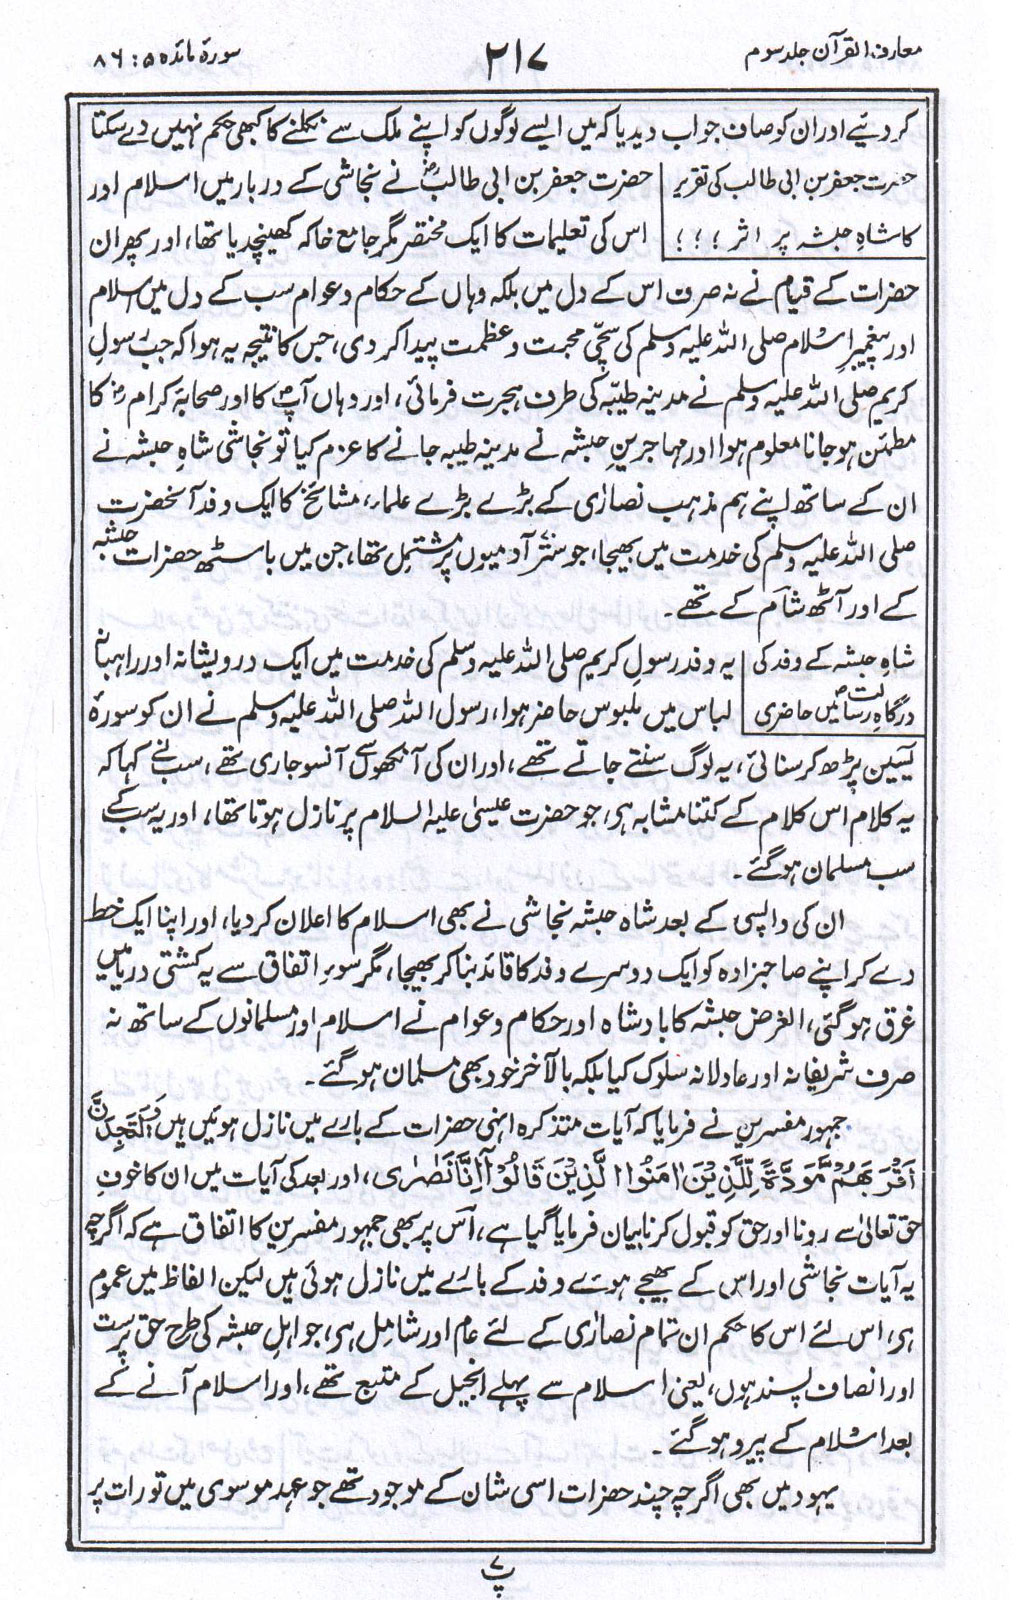 معارف القرآن جلد سوم
۲۱۷
سورۂ مائدہ ۵ : ۸۶
کر دیئے اور ان کو صاف جواب دیدیا کہ میں ایسے لوگوں کو اپنے ملک سے نکلنے کا کبھی حکم نہیں دے سکتا
حضرت جعفر بن ابی طالب کی تقریر
کا شاہِ حبشہ پر اثر ؛ ؛ ؛
حضرت جعفر بن ابی طالبؓ نے نجاشی کے دربار میں اسلام اور
اس کی تعلیمات کا ایک مختصر مگر جامع خاکہ کھینچدیا تھا، اور پھر ان
حضرات کے قیام نے نہ صرف اس کے دل میں بلکہ وہاں کے حکام و عوام سب کے دل میں اسلام
اور پیغمبرِ اسلام صلی اللہ علیہ وسلم کی سچّی محبت و عظمت پیدا کر دی، جس کا نتیجہ یہ ہوا کہ جب رسولِ
کریم صلی اللہ علیہ وسلم نے مدینہ طیبّہ کی طرف ہجرت فرمائی، اور وہاں آپؐ کا اور صحابۂ کرامؓ کا
مطمئن ہو جانا معلوم ہوا اور مہاجرینِ حبشہ نے مدینہ طیبہ جانے کا عزم کیا تو نجاشی شاہِ حبشہ نے
ان کے ساتھ اپنے ہم مذہب نصارٰی کے بڑے بڑے علماء، مشائخ کا ایک وفد آنحضرت
صلی اللہ علیہ وسلم کی خدمت میں بھیجا، جو ستّر آدمیوں پر مشتمل تھا، جن میں باسٹھ حضرات حبشہ
کے اور آٹھ شام کے تھے۔
شاہِ حبشہ کے وفد کی
درگاہِ رسالت میں حاضری
یہ وفد رسولِ کریم صلی اللہ علیہ وسلم کی خدمت میں ایک درویشانہ اور راہبانہ
لباس میں ملبوس حاضر ہوا، رسول اللہ صلی اللہ علیہ وسلم نے ان کو سورۂ
یٰسین پڑھ کر سنائی، یہ لوگ سنتے جاتے تھے، اور ان کی آنکھوں سے آنسو جاری تھے، سب نے کہا کہ
یہ کلام اس کلام کے کتنا مشابہ ہی، جو حضرت عیسیٰ علیہ السلام پر نازل ہوتا تھا، اور یہ سب کے
سب مسلمان ہوگئے۔
ان کی واپسی کے بعد شاہ حبشہ نجاشی نے بھی اسلام کا اعلان کر دیا، اور اپنا ایک خط
دے کر اپنے صاحبزادہ کو ایک دوسرے وفد کا قائد بنا کر بھیجا، مگر سوءِ اتفاق سے یہ کشتی دریا میں
غرق ہوگئی، الغرض حبشہ کا بادشاہ اور حکام و عوام نے اسلام اور مسلمانوں کے ساتھ نہ
صرف شریفانہ اور عادلانہ سلوک کیا بلکہ بالآخر خود بھی مسلمان ہوگئے۔
جمہور مفسرین نے فرمایا کہ آیات متذکرہ انہی حضرات کے بارے میں نازل ہوئیں ہیں وَلَتَجِدَنَّ
اَقْرَبَهُمْ مَّوَدَّةً لِّلَّذِيْنَ اٰمَنُوا الَّذِيْنَ قَالُوْٓا اِنَّا نَصٰرٰى، اور بعد کی آیات میں ان کا خوفِ
حق تعالیٰ سے رونا اور حق کو قبول کرنا بیان فرمایا گیا ہے، اس پر بھی جمہور مفسرین کا اتفاق ہے کہ اگرچہ
یہ آیات نجاشی اور اس کے بھیجے ہوئے وفد کے بارے میں نازل ہوئی ہیں لیکن الفاظ میں عموم
ہی، اس لئے اس کا حکم ان تمام نصارٰی کے لئے عام اور شامل ہی، جو اہلِ حبشہ کی طرح حق پرست
اور انصاف پسند ہوں، یعنی اسلام سے پہلے انجیل کے متبع تھے، اور اسلام آنے کے
بعد اسلام کے پیرو ہوگئے۔
یہود میں بھی اگرچہ چند حضرات اسی شان کے موجود تھے جو عہد موسوی میں تورات پر
پ ۷